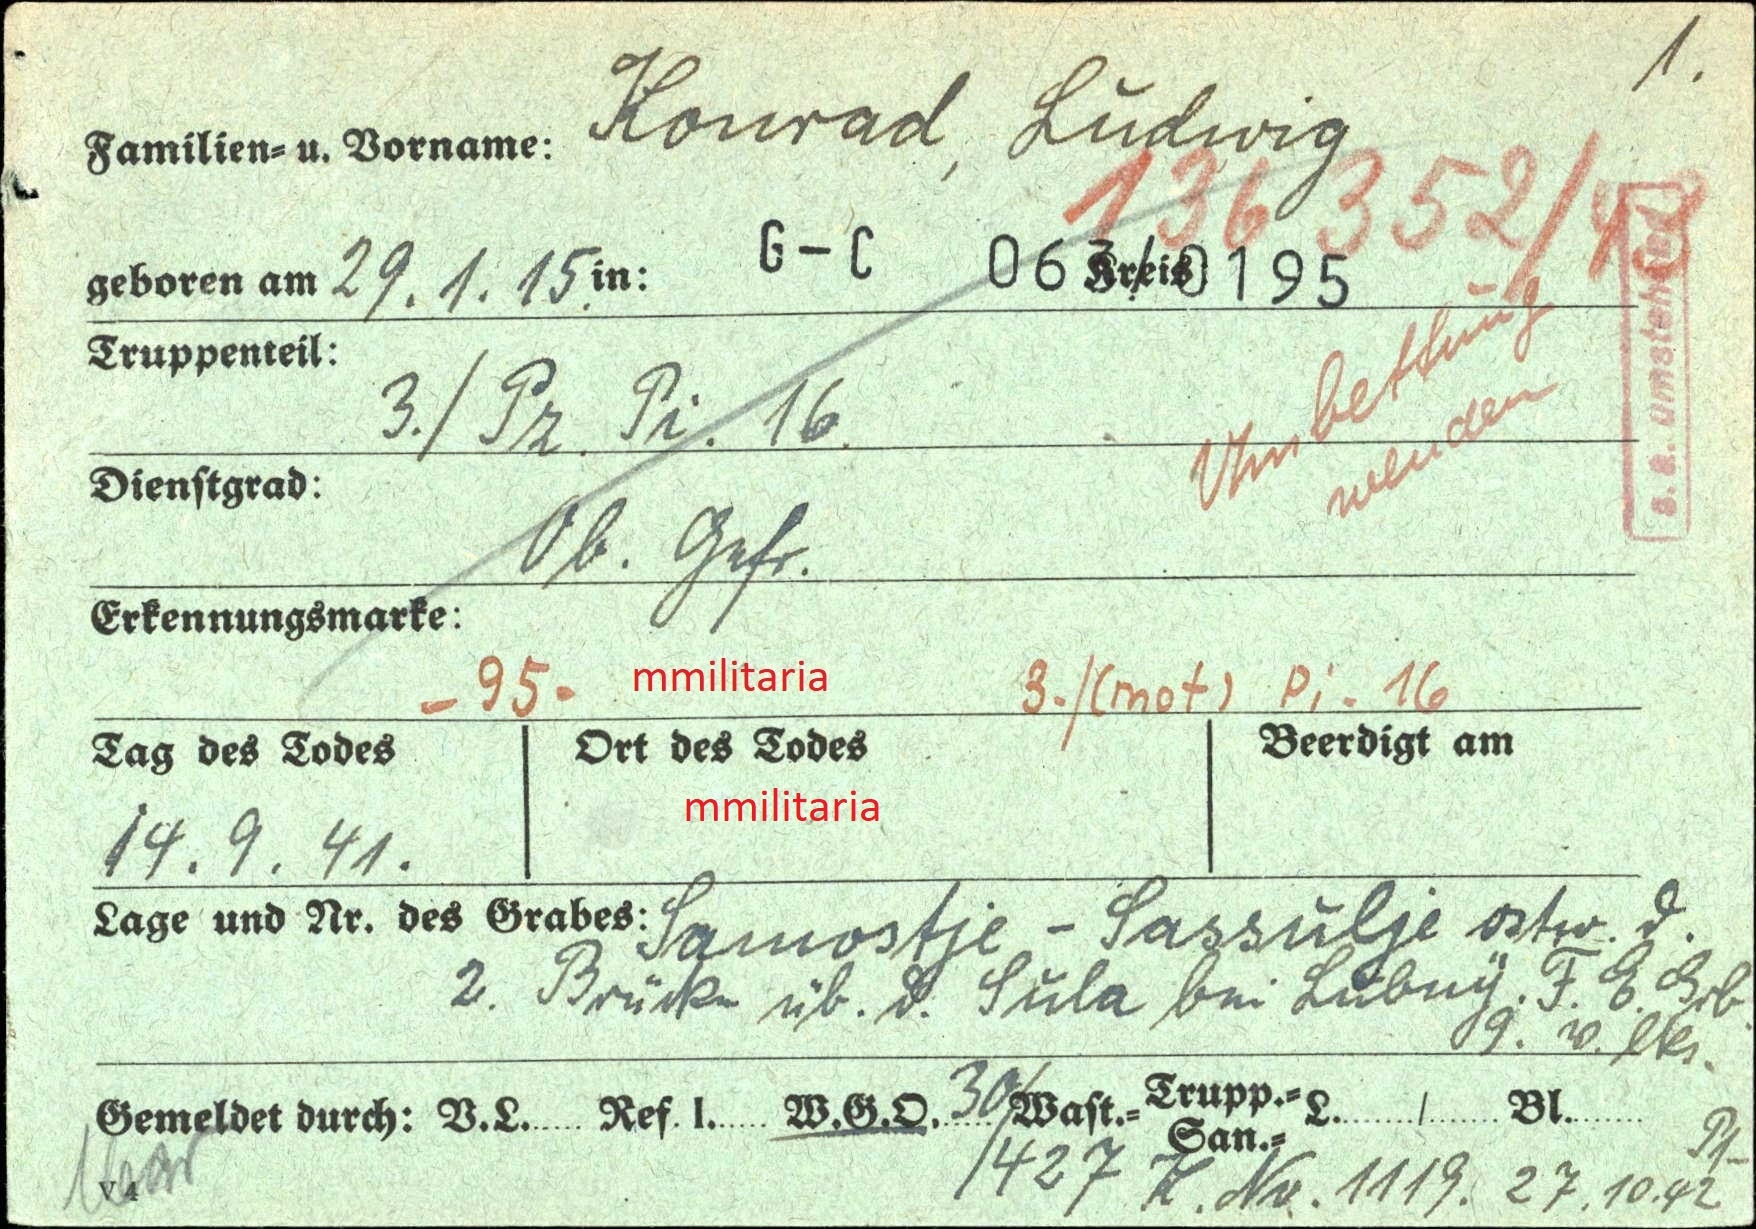 1.
Familien- u. Vorname: Konrad, Ludwig
136 352/
geboren am 29.1.15 in: G-C 063/0195 Kreis
s. a. umstehend
Umbettung
wenden
Truppenteil:
3./ Pz. Pi. 16.
Dienstgrad:
Ob. Gefr.
Erkennungsmarke:
-95- mmilitaria 3./(mot) Pi. 16
Tag des Todes Ort des Todes Beerdigt am
mmilitaria
14. 9. 41.
Lage und Nr. des Grabes: Samostje - Sassulje ostw. d.
2. Brücke üb. d. Sula bei Lubny. F. E. Grb.
9. v. lks.
Gemeldet durch: V.L. Ref. I. W.G.O. 30/ Wast.- Trupp.- L. / Bl.
San.-
/427 K. Nr. 1119. 27.10.42
V 4